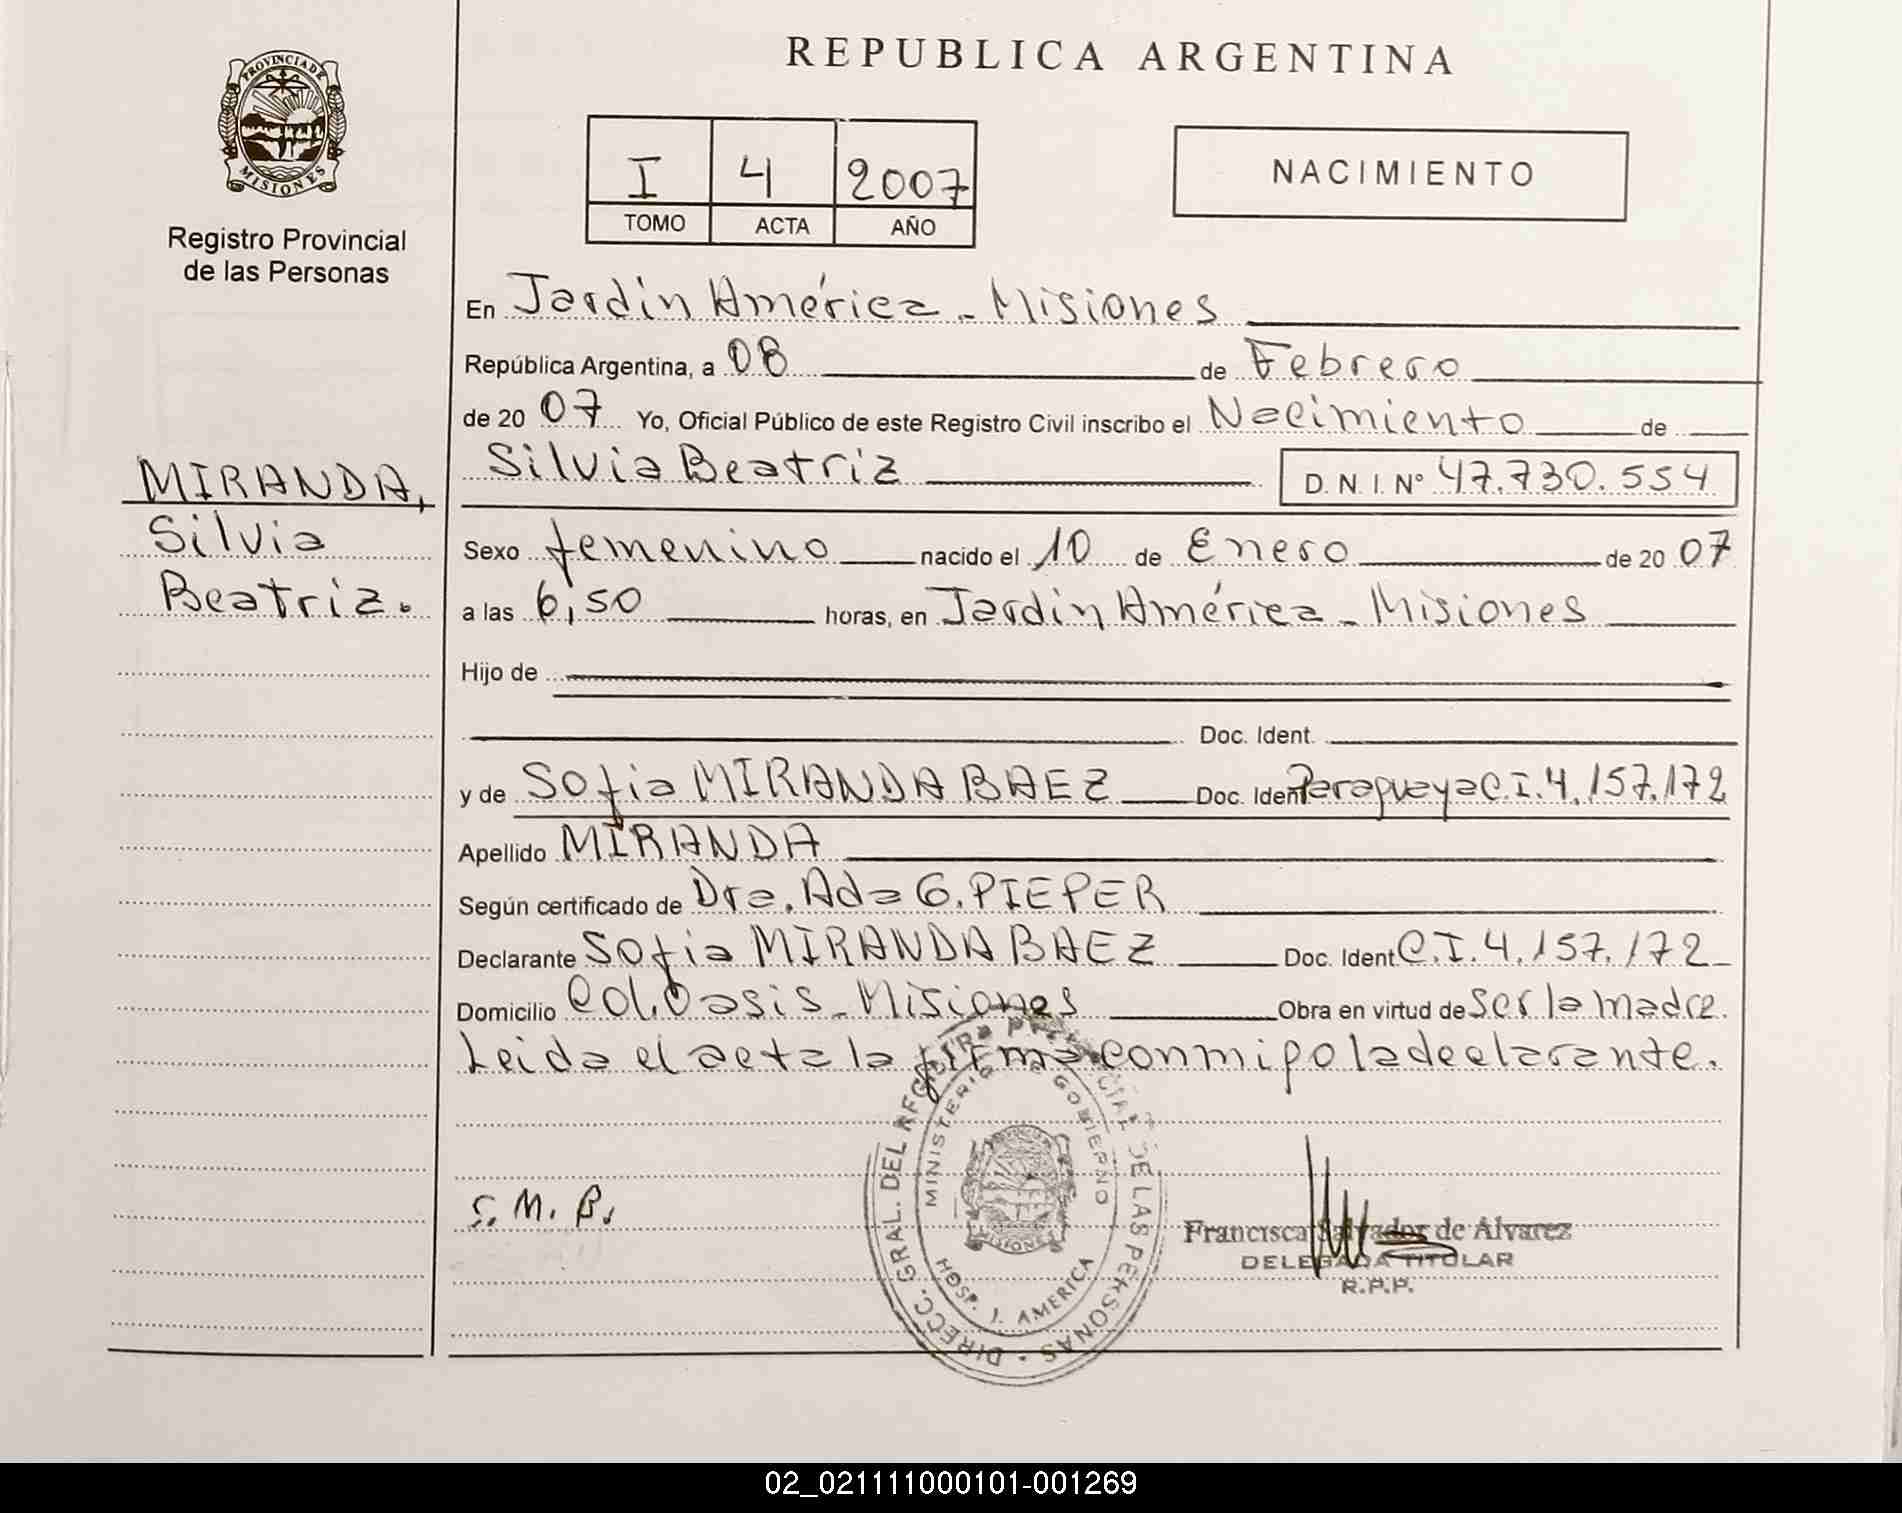 REPUBLICA ARGENTINA
PROVINCIA DE
MISIONES
Registro Provincial
de las Personas
I 4 2007
TOMO ACTA AÑO
NACIMIENTO
En Jardín América - Misiones
República Argentina, a 08 de Febrero
de 20 07 Yo, Oficial Público de este Registro Civil inscribo el Nacimiento de
Silvia Beatriz D. N. I. Nº 47.730.554
MIRANDA,
Silvia
Beatriz.
Sexo femenino nacido el 10 de Enero de 20 07
a las 6,50 horas, en Jardín América - Misiones
Hijo de
Doc. Ident.
y de Sofia MIRANDA BAEZ Doc. Ident Paraguaya C.I. 4.157.172
Apellido MIRANDA
Según certificado de Dra. Ada G. PIEPER
Declarante Sofia MIRANDA BAEZ Doc. Ident C.I. 4.157.172
Domicilio Col. Oasis - Misiones Obra en virtud de ser la madre.
Leida el acta la firma conmigo la declarante.
DIRECC. GRAL. DEL REGISTRO PROVINCIAL DE LAS PERSONAS
MINISTERIO DE GOBIERNO
MISIONES
HOSP. J. AMERICA
S. M. B.
Francisca Salvador de Alvarez
DELEGADA TITULAR
R.P.P.
02_021111000101-001269